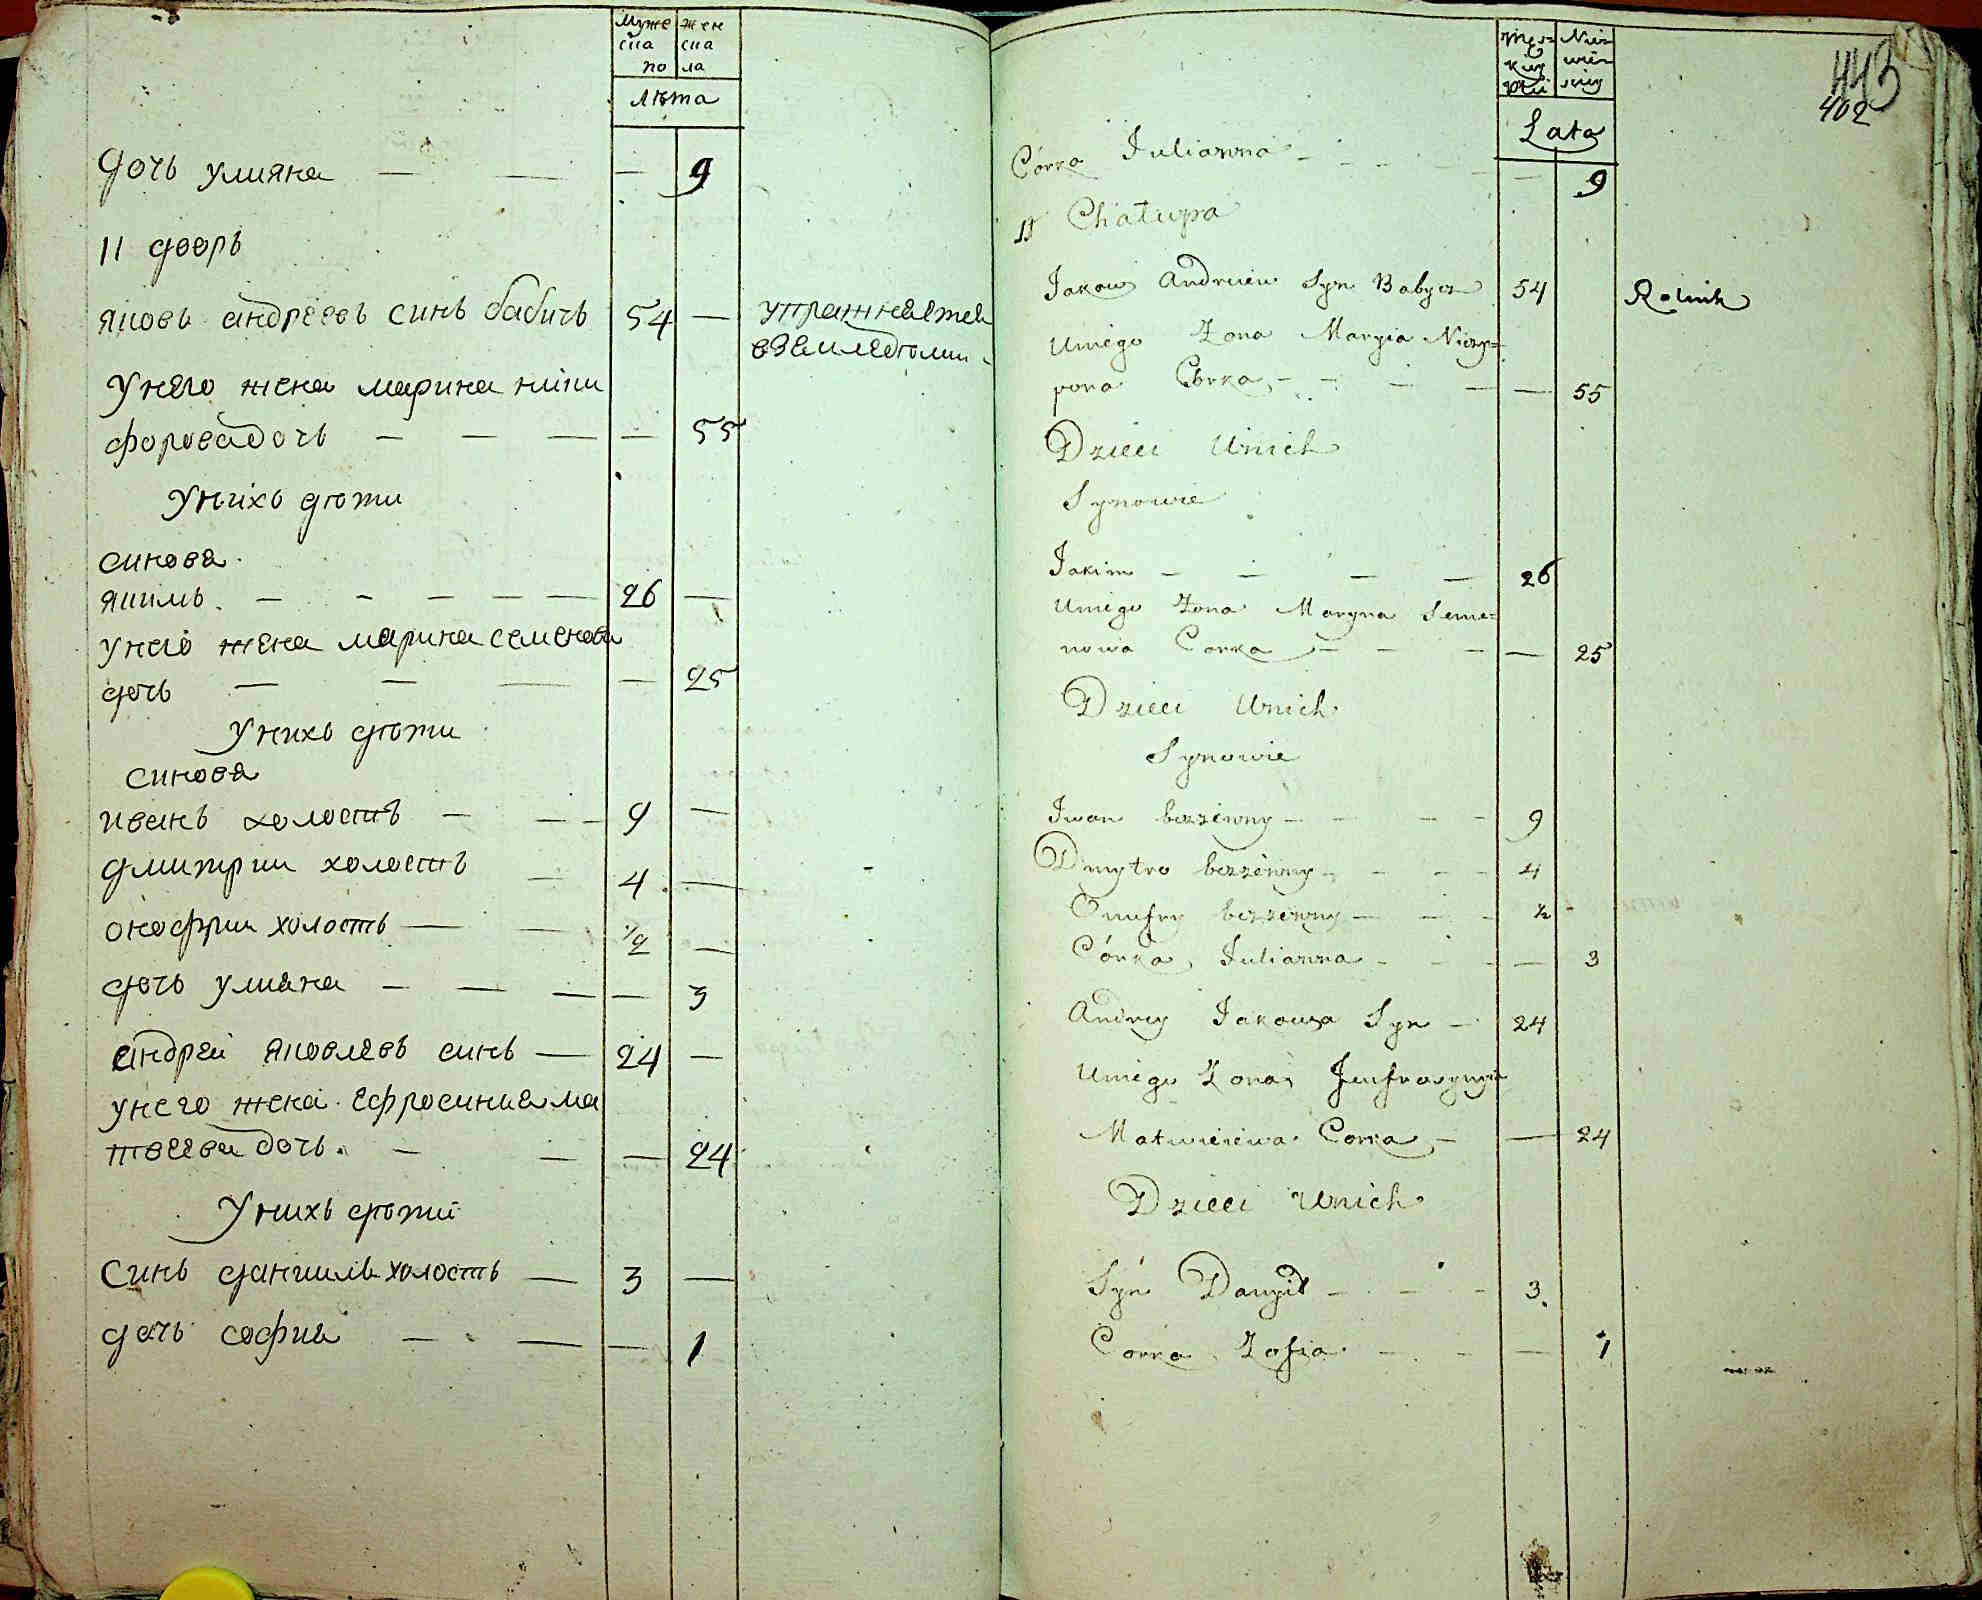 Муже жен
ска ска
по ла
лѣта
дочь улияна — — — 9
11 дворъ
яковъ андреевъ синъ бабичъ 54 — упражняетса
вземледѣлии
Унего жена марина ники
форовадочь — — — — 55
Унихъ дѣти
синова
якимъ — — — — — 26 —
унего жена марина семенова
дочь — — — — 25
Унихъ дѣти
синова
иванъ холостъ — — — 9 —
дмитрии холостъ — 4 —
онофрии холостъ — — 1/2 —
дочь улияна — — — — 3
андреи яковлевъ синъ — 24 —
унего жена ефросиния ма
твеева дочь — — — 24
Унихъ дѣти
Синъ даниилъ холостъ — 3 —
дочь софия — — — 1
443
402
Lata
Córka Julianna — — — — — 9
11 Chałupa
Jakow Andreiew Syn Babycz 54 Rolnik
Uniego Zona Maryia Niczy=
pora Córka — — — — — 55
Dzieci Unich
Synowie
Jakim — — — — 26
Uniego Zona Maryna Seme=
nowa Corka — — — — 25
Dzieci Unich
Synowie
Iwan bezżenny — — — 9
Dmytro bezżenny — — — 4
Onufry bezżenny — — — 1/2 —
Córka Julianna — — — — 3
Andrey Jakowa Syn — 24
Uniego Zona Jeufrosynyia
Matwieiewa Corka — — 24
Dzieci Unich
Syn Danyił — — — 3
Corka Zofia — — — — 1